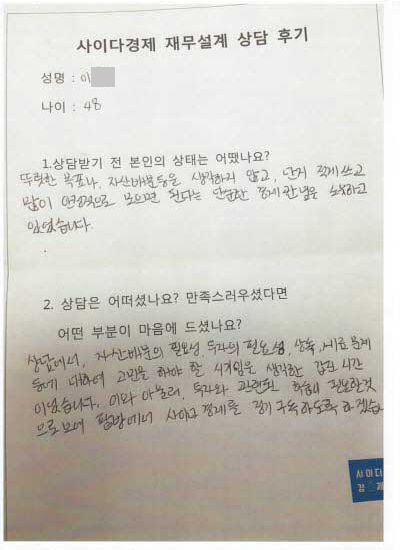 사이다경제 재무설계 상담 후기
성명 : 이
나이 : 48
1.상담받기 전 본인의 상태는 어땠나요?
뚜렷한 목표나, 자산배분등을 생각하지 않고, 단지 적게 쓰고
많이 안정적으로 모으면 된다는 단순한 경제관념을 소유하고
있었습니다.
2. 상담은 어떠셨나요? 만족스러우셨다면
어떤 부분이 마음에 드셨나요?
상담에서, 자산배분의 필요성, 투자의 필요성, 상속, 세금문제
등에 대하여 고민을 해야 할 시기임을 생각한 값진 시간
이었습니다. 이와 아울러, 투자와 관련된 학습이 필요한것
으로 보여 평범에서 사이다 경제를 정기 구독하도록 하겠습
사이다
경제